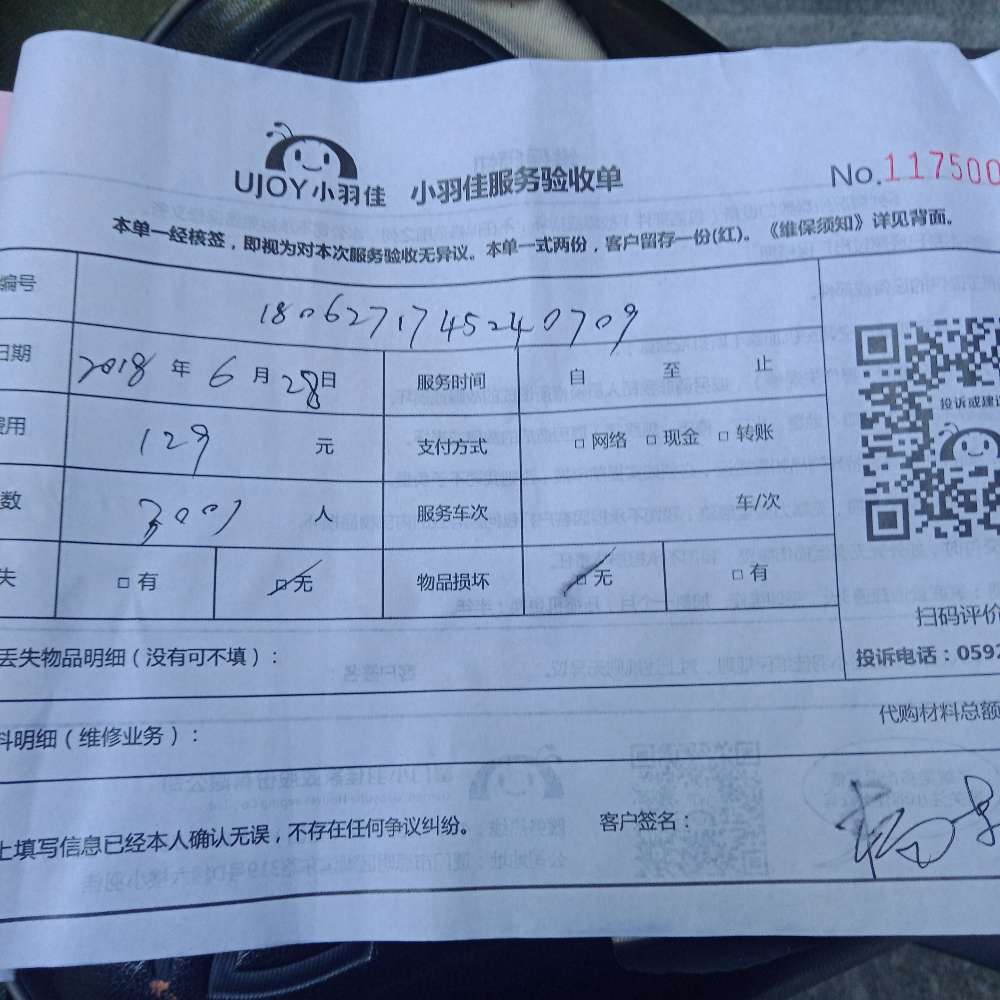 UJOY小羽佳 小羽佳服务验收单 No.117500
本单一经核签，即视为对本次服务验收无异议。本单一式两份，客户留存一份(红)。《维保须知》详见背面。
编号 180627174524 0709
日期 2018 年 6 月 28 日 服务时间 自 至 止
费用 129 元 支付方式 □ 网络 □ 现金 □ 转账
数 人 服务车次 车/次
失 □ 有 □ 无 物品损坏 □ 无 □ 有
投诉或建议
扫码评价
丢失物品明细（没有可不填）：
投诉电话：0592
代购材料总额
料明细（维修业务）：
上填写信息已经本人确认无误，不存在任何争议纠纷。 客户签名：